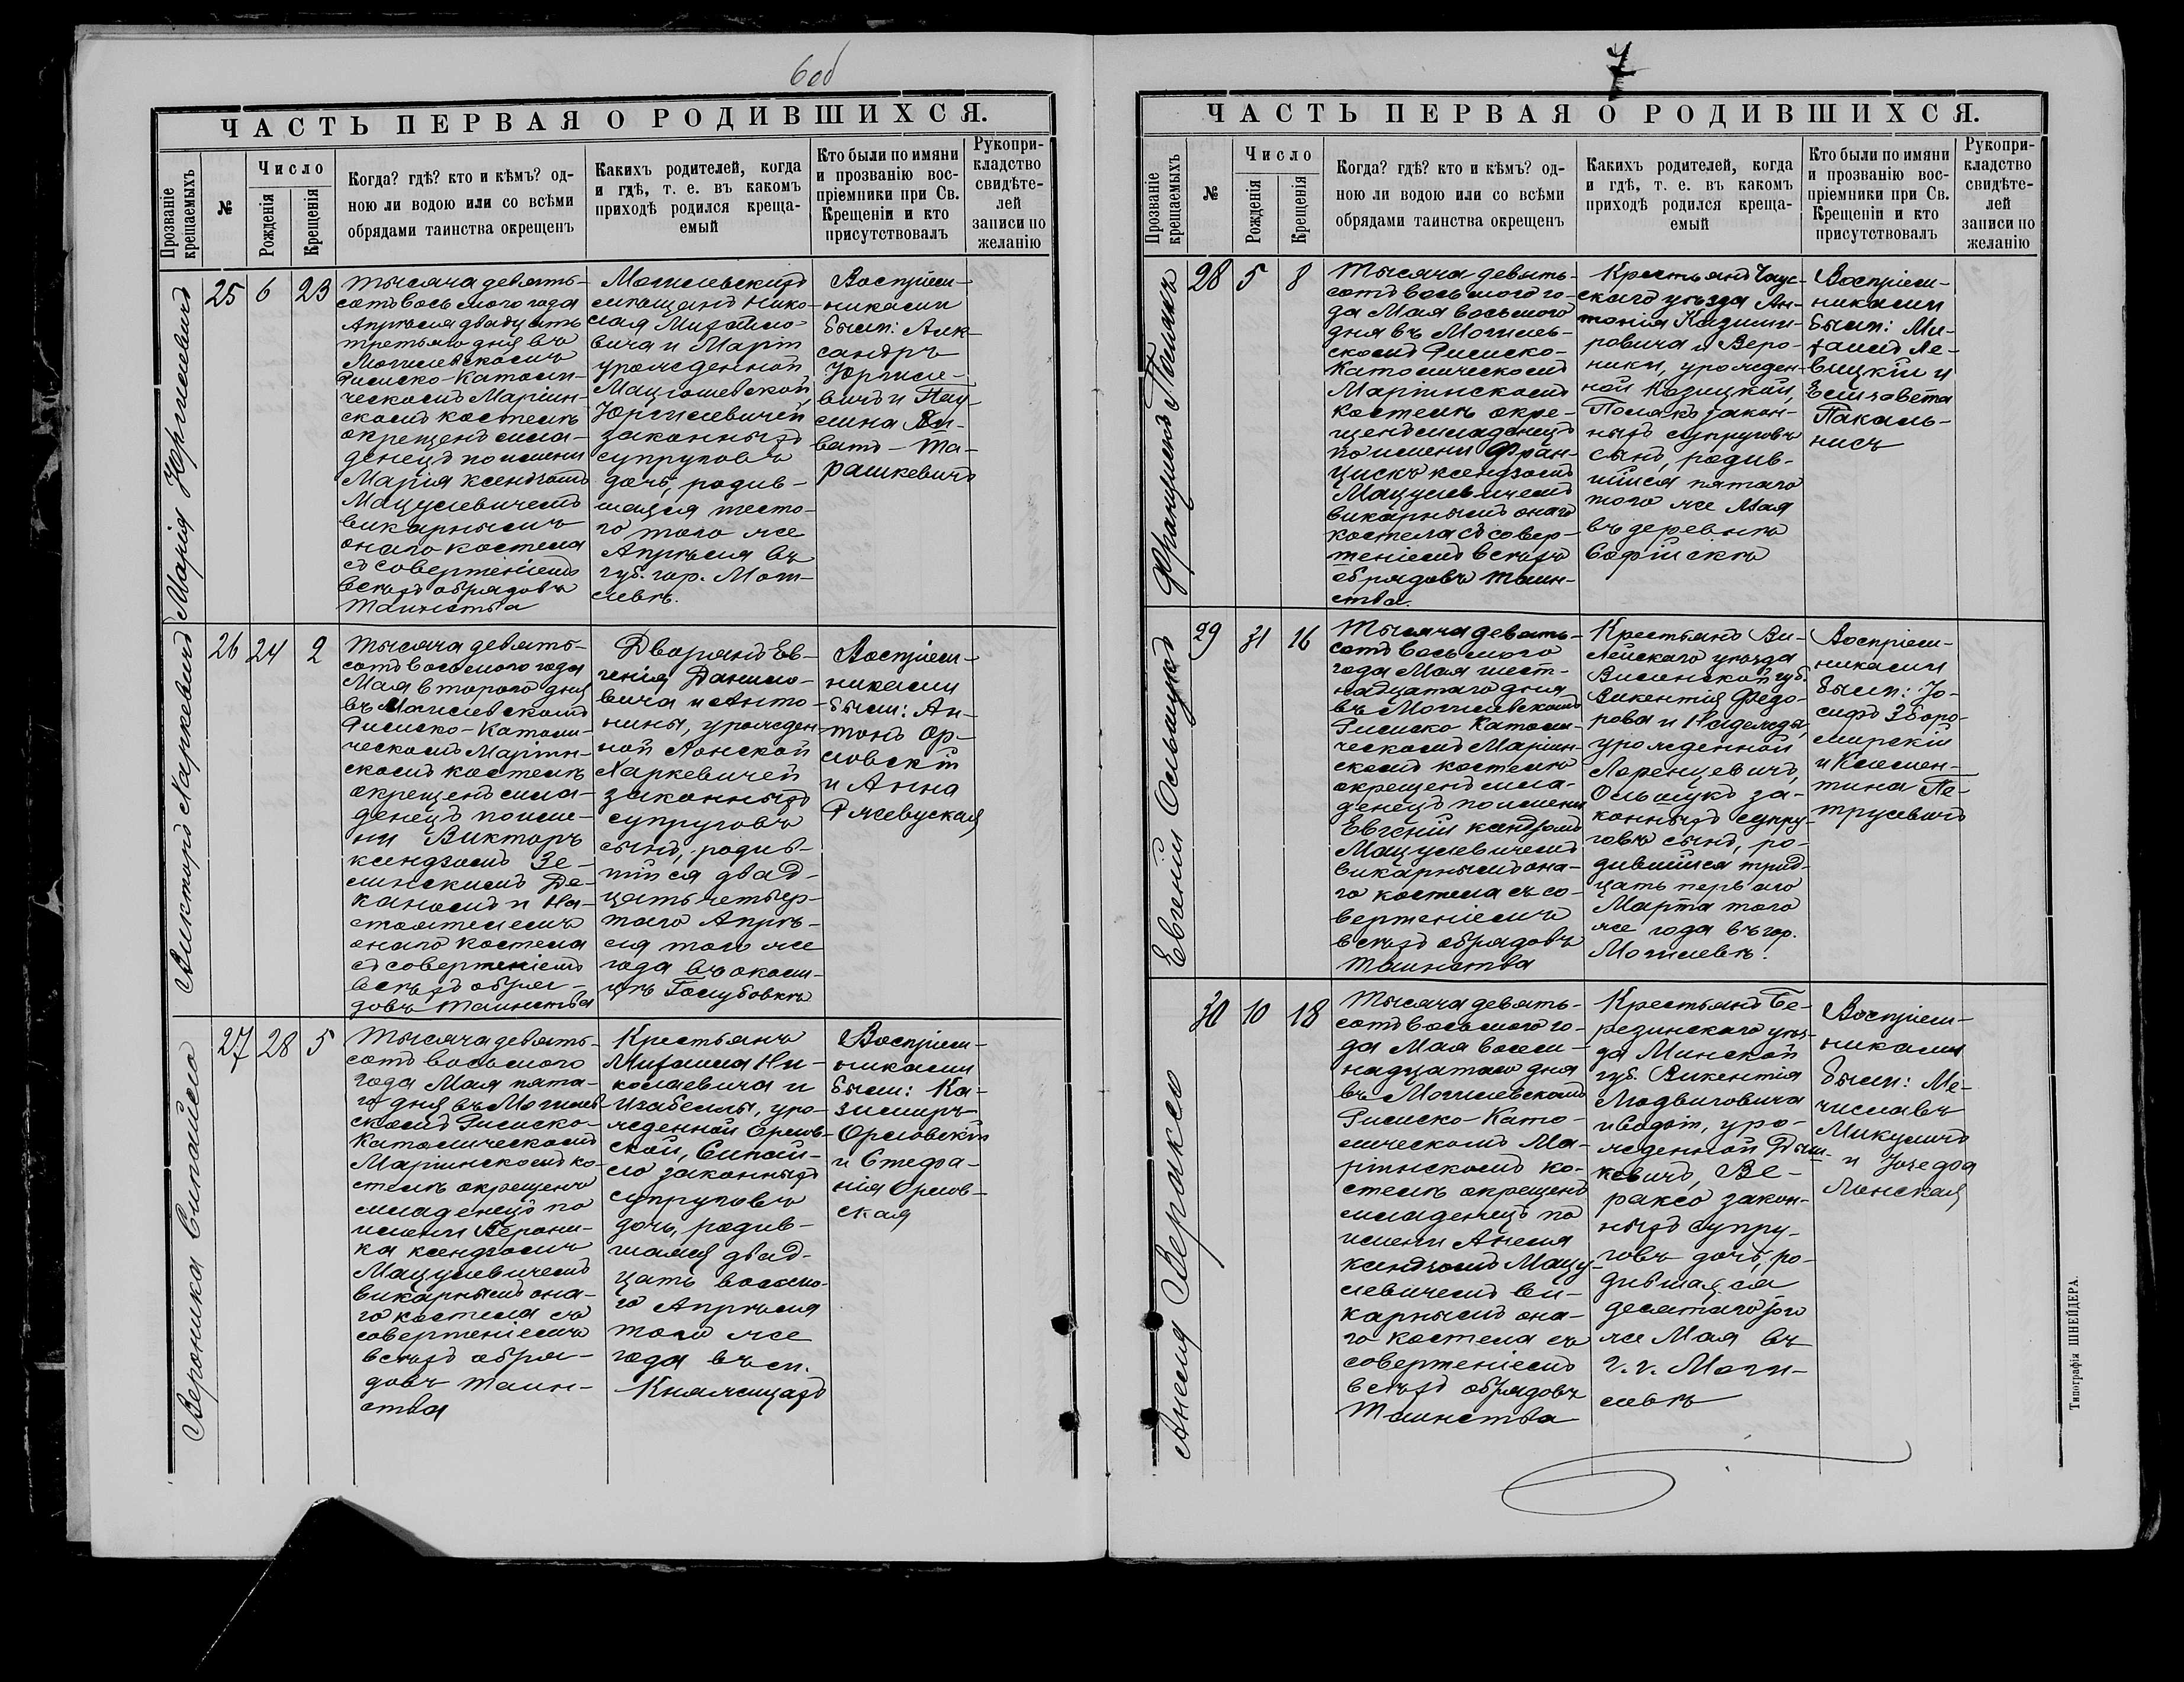 6об
ЧАСТЬ ПЕРВАЯ О РОДИВШИХСЯ.
Прозваніе крещаемыхъ
№
Число
Рожденія
Крещенія
Когда? гдѣ? кто и кѣмъ? од-
ною ли водою или со всѣми
обрядами таинства окрещенъ
Какихъ родителей, когда
и гдѣ, т. е. въ какомъ
приходѣ родился креща-
емый
Кто были по имяни
и прозванію вос-
пріемники при Св.
Крещеніи и кто
присутствовалъ
Рукопри-
кладство
свидѣте-
лей
записи по
желанію
Марія Юргилевичъ
25
6
23
Тысяча девять-
сотъ восьмого года
Апрѣля двадцать
третьяго дня въ
Могилевскомъ
Римско-Католи-
ческомъ Маріин-
скомъ костелѣ
окрещенъ мла-
денецъ по имени
Марія ксендзомъ
Мацулевичемъ
викарнымъ
онаго костела
съ совершеніемъ
всѣхъ обрядовъ
таинства
Могилевскихъ
мѣщанъ Нико-
лая Михайло-
вича и Маріи
урожденной
Юргилевичей
законныхъ
супруговъ
дочь, родив-
шаяся шесто-
го того же
Апрѣля въ
губ. гор. Моги-
левѣ.
Воспріем-
никами
были: Алек-
сандръ
Юргиле-
вичъ и Пау-
лина
Та-
рашкевичъ
Викторъ Харкевичъ
26
24
2
Тысяча девять-
сотъ восьмого года
Мая второго дня
въ Могилевскомъ
Римско-Католи-
ческомъ Маріин-
скомъ костелѣ
окрещенъ мла-
денецъ по име-
ни Викторъ
ксендзомъ Зе-
линскимъ Де-
каномъ и На-
стоятелемъ
онаго костела
съ совершеніемъ
всѣхъ обря-
довъ таинства
Дворянъ Ев-
генія Данило-
вича и Анто-
нины, урожден-
ной Лонской
Харкевичей
законныхъ
супруговъ
сынъ, родив-
шійся двад-
цать четвер-
таго Апрѣ-
ля того же
года въ околи-
цѣ Голубовкѣ
Воспріем-
никами
были: Ан-
тонъ Ор-
ловскій
и Анна
Ржевуская
Вероника Сипайло
27
28
5
Тысяча девять-
сотъ восьмого
года Мая пята-
го дня въ Могилев-
скомъ Римско-
Католическомъ
Маріинскомъ ко-
стелѣ окрещенъ
младенецъ по
имени Верони-
ка ксендзомъ
Мацулевичемъ
викарнымъ она-
го костела съ
совершеніемъ
всѣхъ обря-
довъ таин-
ства
Крестьянъ
Михаила Ни-
колаевича и
Изабеллы, уро-
жденной Орлов-
ской, Сипай-
ло законныхъ
супруговъ
дочь, родив-
шаяся двад-
цать восьмо-
го Апрѣля
того же
года въ им.
Княжицахъ
Воспріем-
никами
были: Ка-
зимиръ
Орловскій
и Стефа-
нія Орлов-
ская
7
ЧАСТЬ ПЕРВАЯ О РОДИВШИХСЯ.
Прозваніе крещаемыхъ
№
Число
Рожденія
Крещенія
Когда? гдѣ? кто и кѣмъ? од-
ною ли водою или со всѣми
обрядами таинства окрещенъ
Какихъ родителей, когда
и гдѣ, т. е. въ какомъ
приходѣ родился креща-
емый
Кто были по имяни
и прозванію вос-
пріемники при Св.
Крещеніи и кто
присутствовалъ
Рукопри-
кладство
свидѣте-
лей
записи по
желанію
Францискъ Полякъ
28
5
8
Тысяча девять-
сотъ восьмого го-
да Мая восьмого
дня въ Могилев-
скомъ Римско-
Католическомъ
Маріинскомъ
костелѣ окре-
щенъ младенецъ
по имени Фран-
цискъ ксендзомъ
Мацулевичемъ
викарнымъ онаго
костела съ совер-
шеніемъ всѣхъ
обрядовъ таин-
ства.
Крестьянъ Чаус-
скаго уѣзда Ан-
тонія Казими-
ровича и Веро-
ники, урожден-
ной Козицкой,
Полякъ закон-
ныхъ супруговъ
сынъ, родив-
шійся пятаго
того же Мая
въ деревнѣ
Софійскѣ
Воспріем-
никами
были: Ми-
хаилъ Ле-
вицкій и
Елизавета
Пакаль-
нисъ
Евгеній Ольшукъ
29
31
16
Тысяча девять-
сотъ восьмого
года Мая шест-
надцатаго дня
въ Могилевскомъ
Римско-Католи-
ческомъ Маріин-
скомъ костелѣ
окрещенъ мла-
денецъ по имени
Евгеній ксендзомъ
Мацулевичемъ
викарнымъ она-
го костела съ со-
вершеніемъ
всѣхъ обрядовъ
таинства
Крестьянъ Ви-
лейскаго уѣзда
Виленской губ.
Викентія Федо-
рова и Надежды,
урожденной
Лоренцевичъ,
Ольшукъ за-
конныхъ супру-
говъ сынъ, ро-
дившійся трид-
цать перваго
Марта того
же года въ гор.
Могилевѣ.
Воспріем-
никами
были: Іо-
сифъ Зборо-
мирскій
и Клемен-
тина Пе-
трусевичъ
Анеля Вераксо
30
10
18
Тысяча девять-
сотъ восьмого го-
да Мая восем-
надцатаго дня
въ Могилевскомъ
Римско-Като-
лическомъ Ма-
ріинскомъ ко-
стелѣ окрещенъ
младенецъ по
имени Анеля
ксендзомъ Мацу-
левичемъ ви-
карнымъ она-
го костела съ
совершеніемъ
всѣхъ обрядовъ
Таинства
Крестьянъ Бе-
резинскаго уѣз-
да Минской
губ. Викентія
Людвиговича
уро-
жденной Дыш-
кевичъ, Ве-
раксо закон-
ныхъ супру-
говъ дочь, ро-
дившаяся
десятаго того
же Мая въ
г. г. Моги-
левѣ
Воспріем-
никами
были: Ме-
числавъ
Микуличъ
и Іозефа
Лонская
Типографія ШНЕЙДЕРА.